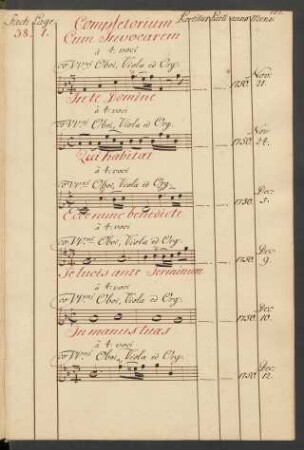 Fach Lage
38. 1.
Completorium
Cum Invocarem
à 4. voci
co VVni Oboi, Viola ed Org.
1750. Nov: 21.
In te Domine
à 4. voci
co VVni Oboi, Viola ed Org.
1750. Nov: 24.
Qui habitat
à 4. voci
co VVni Oboi, Viola ed Org.
1750. Dec: 5.
Ecce nunc benedicite
à 4. voci
co VVni Oboi, Viola ed Org.
1750. Dec: 9.
Te lucis ante Terminum
à 4. voci
co VVni Oboi, Viola ed Org.
1750. Dec: 10.
In manus tuas
à 4. voci
co VVni Oboi, Viola ed Org.
1750. Dec: 12.